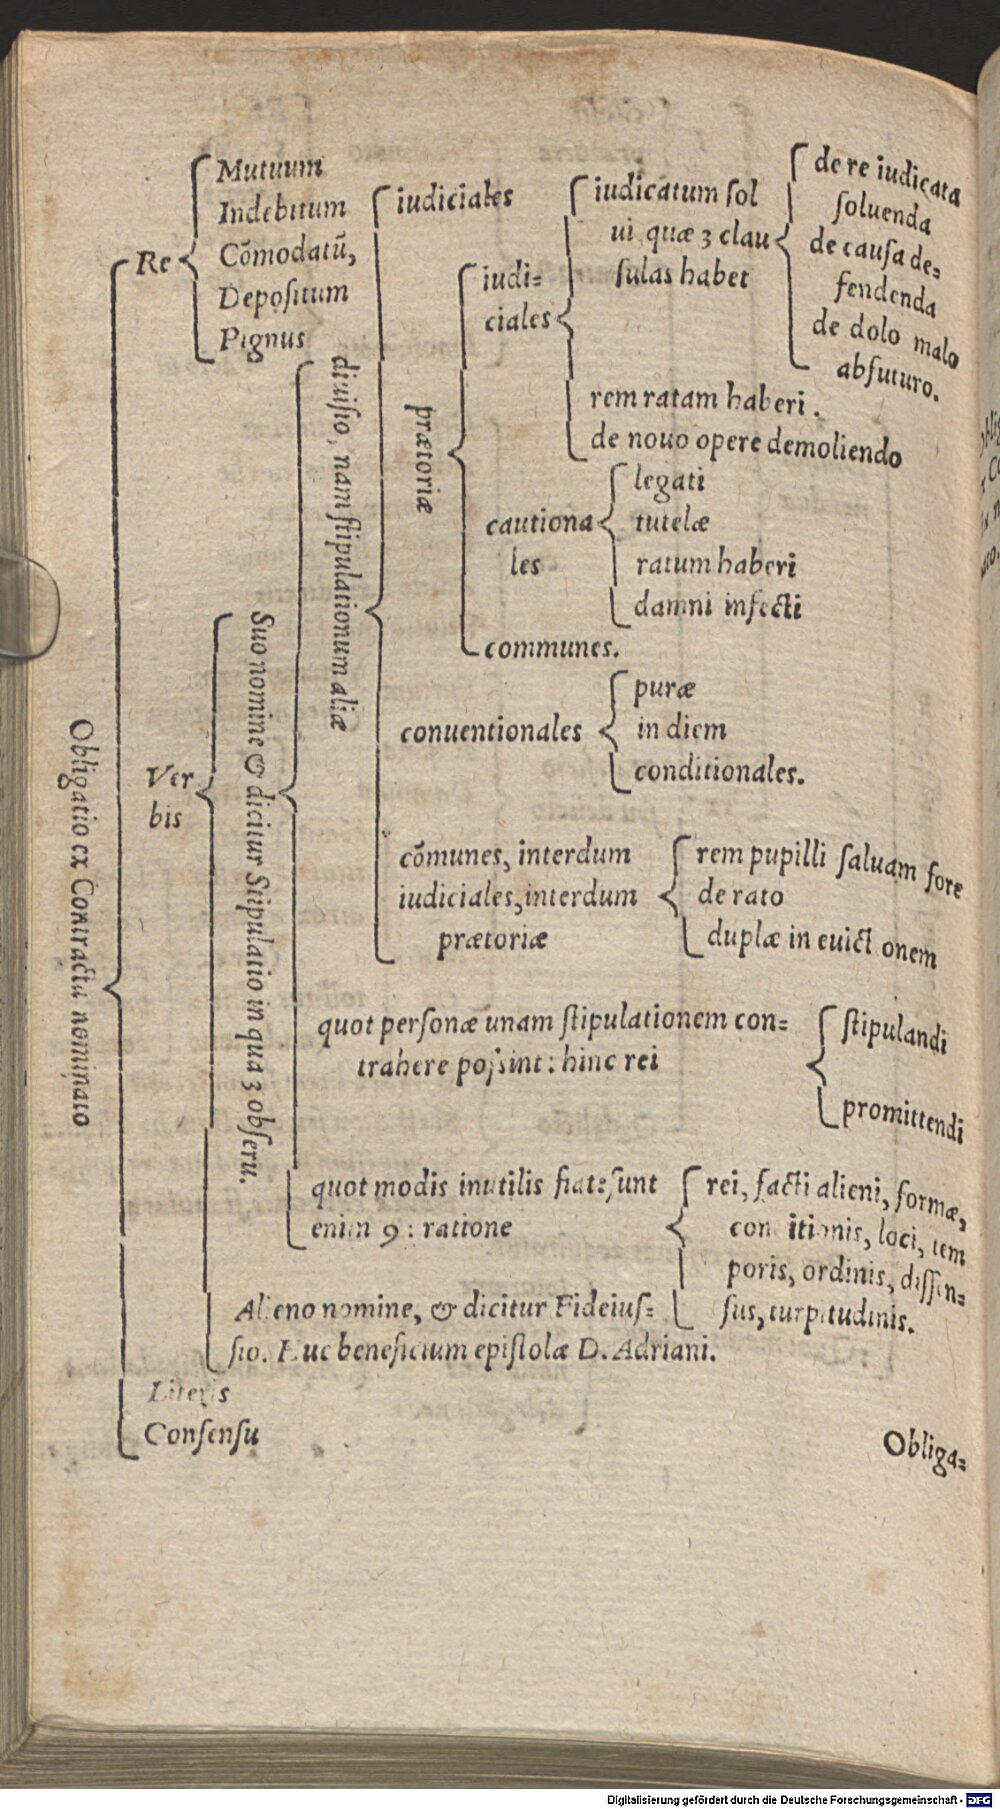 Obligatio ex Contractu nominato
Re
Mutuum
Indebitum
Cõmodatũ,
Depositum
Pignus
Ver
bis
Suo nomine & dicitur Stipulatio in qua 3 obseru.
diuisio, nam stipulationum aliæ
iudiciales
prætoriæ
iudi=
ciales
iudicatum sol
ui quæ 3 clau
sulas habet
de re iudicata
soluenda
de causa de=
fendenda
de dolo malo
absuturo.
rem ratam haberi.
de nouo opere demoliendo
cautiona
les
legati
tutelæ
ratum haberi
damni infecti
communes.
conuentionales
puræ
in diem
conditionales.
cõmunes, interdum
iudiciales, interdum
prætoriæ
rem pupilli saluam fore
de rato
duplæ in euict onem
quot personæ unam stipulationem con=
trahere possint: hinc rei
stipulandi
promittendi
quot modis inutilis fiat: sunt
enim 9: ratione
rei, facti alieni, formæ,
con itionis, loci, tem
poris, ordinis, dissen=
sus, turpitudinis.
Alieno nomine, & dicitur Fideius=
sio. Huc beneficium epistolæ D. Adriani.
Literis
Consensu
Obliga=
Digitalisierung gefördert durch die Deutsche Forschungsgemeinschaft - DFG